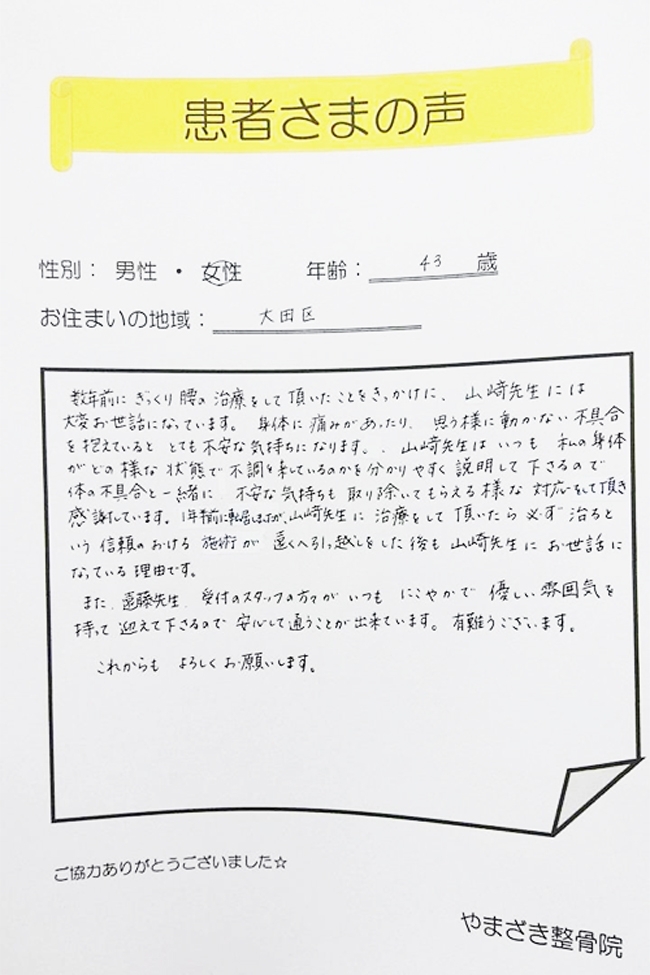 患者さまの声
性別： 男性 ・ 女性 年齢： 43 歳
お住まいの地域： 大田区
数年前に ぎっくり腰の 治療をして 頂いたことをきっかけに、山崎先生には
大変お世話になっています。身体に 痛みがあったり、思う様に動かない 不具合
を 抱えていると とても不安な気持ちになります。、山崎先生は いつも 私の身体
が どの様な 状態で 不調を来しているのかを 分かりやすく 説明して 下さるので
体の不具合と一緒に、不安な気持ちも 取り除いてもらえる 様な 対応をして頂き
感謝しています。1年前に転居しましたが、山崎先生に 治療をして 頂いたら 必ず 治ると
いう 信頼のおける 施術が 遠くへ引っ越しをした後も 山崎先生に お世話に
なっている 理由です。
また、遠藤先生、受付のスタッフの方々が いつも にこやかで 優しい 雰囲気を
持って 迎えて下さるので 安心して通うことが出来ています。有難うございます。
これからも よろしくお願いします。
ご協力ありがとうございました☆
やまざき整骨院